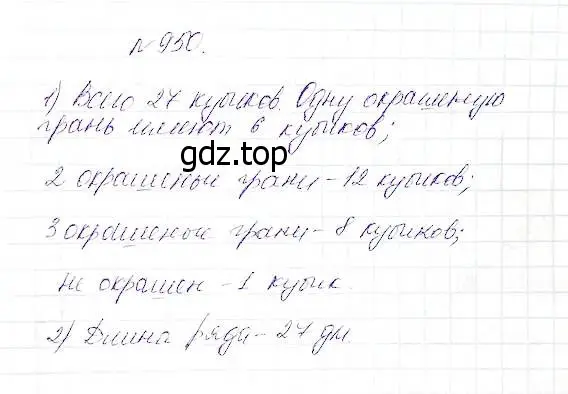 №950.
1) Всего 27 кубиков. Одну окрашеную
грань имеют 6 кубиков;
gdz.top
2 окрашеные грани - 12 кубиков;
3 окрашеные грани - 8 кубиков;
не окрашен - 1 кубик.
2) Длина ряда - 27 дм.